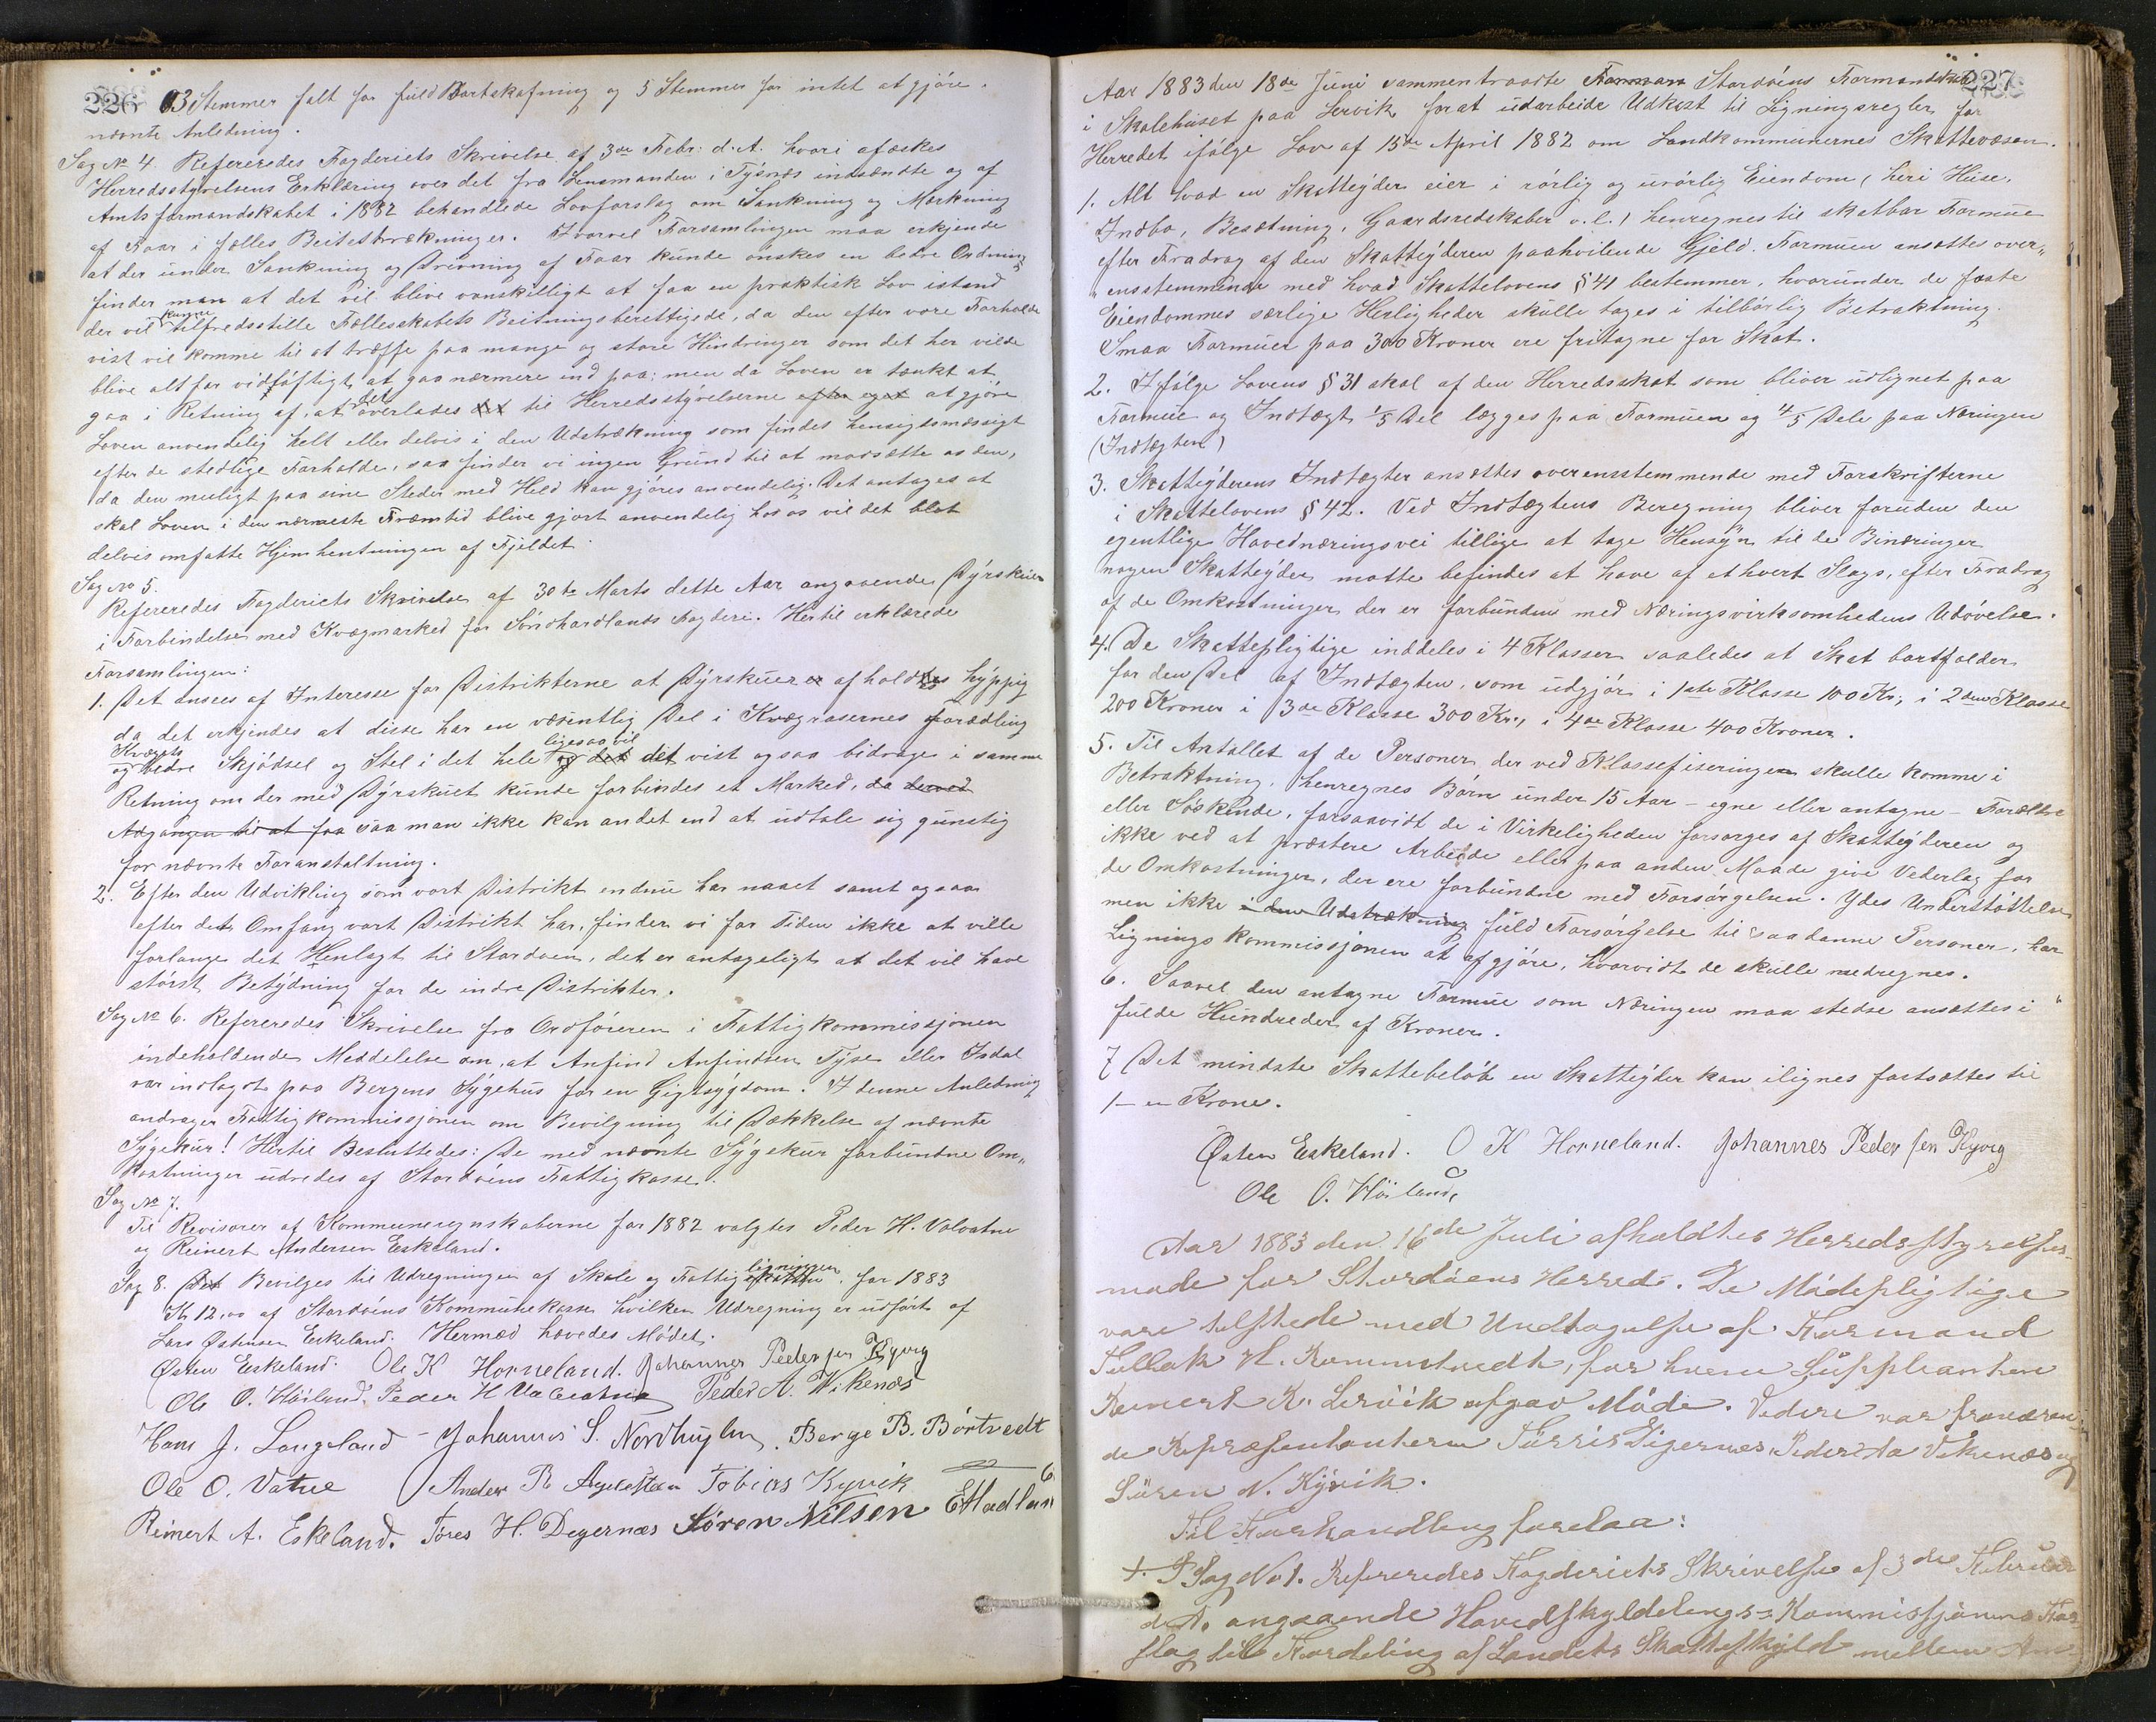 226 13 Stemmer falt for fuld Bortskafning og 5 Stemmer for intet at gjöre.
nævnte Anledning.
Sag No 4. Refereredes Fogderiets Skrivelse af 3de Febr. d. A. hvori afæskes
Herredsstyrelsens Erklæring over det fra Lensmanden i Tysnæs indsendte og af
Amtsformandskabet i 1882 behandlede Lovforslag om Sankning og Mærkning
af Faar i fælles Beitestrækninger. Hvorvel Forsamlingen maa erkjende
at der under Sankning og Drivning af Faar kunde önskes en bedre Ordning
finder man at det vil blive vanskilligt at faa en praktisk Lov istand
der vil kunne tilfredsstille Fællesskabets Beitningsberettigede, da den efter vore Forholde
vist vil komme til at træffe paa mange og store Hindringer som det her vilde
blive alt for vidtløftigt at gaa nærmere ind paa; men da Loven er tænkt at
gaa i Retning af, at det overlades det til Herredsstyrelserne efter eget at gjöre
Loven anvendelig helt eller delvis i den Udstrækning som findes hensigtsmæssigt
efter de stedlige Forholde, saa finder vi ingen Grund til at modsætte os den,
da den muligt paa sine Steder med Held kan gjöres anvendelig. Det antages at
skal Loven i den nærmeste Fremtid blive gjort anvendelig hos os vil det blot
delvis omfatte Hjemhentningen af Fjeldet.
Sag No 5.
Refereredes Fogderiets Skrivelse af 30te Marts dette Aar angaaende Dyrskuer
i Forbindelse med Kvægmarked for Söndhordlands Fogderi. Hertil erklærede
Forsamlingen:
1. Det ansees af Interesse for Distrikterne at Dyrskuer er afholdtes hyppig
da det erkjendes at disse har en væsentlig Del i Kvægrasernes forædling
og Kvægets bedre Skjödsel og Stel i det hele og det ligesaavil det vist ogsaa bidrage i samme
Retning om der med Dyrskuet kunde forbindes et Marked, da derved
Adgangen til at faa saa man ikke kan andet end at udtale sig gunstig
for nævnte Foranstaltning.
2. Efter den Udvikling som vort Distrikt endnu har naaet samt ogsaa
efter det Omfang vort Distrikt har, finder vi for Tiden ikke at ville
forlange det Henlagt til Stordöen, det er antageligt at det vil have
störst Betydning for de indre Distrikter.
Sag No 6. Refereredes Skrivelse fra Ordföreren i Fattigkommissjonen
indeholdende Meddelelse om, at Anfind Anfindsen Tyse eller Isdal
var indlagdt paa Bergens Sygehus for en Gigtsygdom. I denne Anledning
andrager Fattigkommissjonen om Bevilgning til Dækkelse af nævnte
Sygekur! Hertil Besluttedes: De med nævnte Sygekur forbundne Om„
kostninger udredes af Stordöens Fattigkasse.
Sag No 7.
Til Revisorer af Kommuneregnskaberne for 1882 valgtes Peder H. Valvatne
og Reinert Andersen Eskeland.
Sag 8. Det Bevilges til Udregningen af Skole og Fattigskatten ligningen for 1883
Kr 12,00 af Stordöens Kommunekasse hvilken Udregning er udfört af
Lars Østensen Eskeland. Hermed hævedes Mödet.
Østen Eskeland. Ole K Horneland. Johannes Pedersen Kyvig
Ole O. Höiland. Peder H Valvatne Peder A. Vikenæs
Hans J. Langeland - Johannis S. Nordhuglen. Berge B. Börtvedt
Ole O. Vatne Anders R Tobias Kyvik
Reinert A. Eskeland. Tores H. Degernæs Sören Nilsen E Hadland
227
Aar 1883 den 18de Juni sammentraadte Forman Stordöens Formandskab
i Skolehuset paa Lervik for at udarbeide Udkast til Ligningsregler for
Herredet ifölge Lov af 15de April 1882 om Landkommunernes Skattevæsen.
1. Alt hvad en Skatteyder eier i rörlig og urörlig Eiendom (heri Huse,
Indbo, Besætning, Gaardsredskaber o. l.) henregnes til skatbar Formue
efter Fradrag af den Skatteyderen paahvilende Gjeld. Formuen ansættes over„
„ensstemmende med hvad Skattelovens § 41 bestemmer, hvorunder de faste
Eiendommes særlige Herligheder skulle tages i tilbörlig Betraktning.
Smaa Formuer paa 300 Kroner ere fritagne for Skat.
2. Ifölge Lovens § 31 skal af den Herredsskat som bliver udlignet paa
Formue og Indtægt 1/5 Del lægges paa Formuen og 4/5 Dele paa Næringen
(Indtægten)
3. Skatteyderens Indtægter ansættes overensstemmende med Forskrifterne
i Skattelovens § 42. Ved Indtægtens Beregning bliver foruden den
egentlige Hovednæringsvei tillige at tage Hensyn til de Binæringer
nogen Skatteyder maatte befindes at have af ethvert Slags, efter Fradrag
af de Omkostninger der er forbunden med Næringsvirksomhedens Udövelse.
4. De Skattepligtige inddeles i 4 Klasser saaledes at Skat bortfalder
for den Del af Indtægten, som udgjör i 1ste Klasse 100 Kr, i 2den Klasse
200 Kroner i 3de Klasse 300 Kr., i 4de Klasse 400 Kroner.
5. Til Antallet af de Personer der ved Klassefiseringen skulle komme i
Betraktning, henregnes Börn under 15 Aar - egne eller antagne - Forældre
eller Söskende, forsaavidt de i Virkeligheden forsorges af Skatteyderen og
ikke ved at præstere Arbeide eller paa anden Maade give Vederlag for
de Omkostninger, der ere forbundne med Forsörgelsen. Ydes Understöttelse
men ikke i den Udstrækning fuld Forsörgelse til saadanne Personer, har
Ligningskommissjonen at afgjöre, hvorvidt de skulle medregnes.
6. Saavel den antagne Formue som Næringen maa stedse ansættes i
fulde Hundreder af Kroner.
7 Det mindste Skattebelöb en Skatteyder kan ilignes fastsættes til
1 - en Krone.
Østen Eskeland. O K Horneland. Johannes Pedersen Kyvig
Ole O. Höiland,
Aar 1883 den 16de Juli afholdtes Herredsstyrelses
möde for Stordöens Herred. De Mödepligtige
vare tilstede med Undtagelse af Formand
Tellak H. Rommetvedt, for hvem Suppleanten
Reinert K. Lervik afgav Möde. Videre var fraværen„
de Repræsentanterne Torris Digernes, Peder Aa Vikenæs og
Sören N. Kyvik.
Til Forhandling forelaa:
+. I Sag No 1. Refereredes Fogderiets Skrivelse af 3de Februar
d. A. angaaende Hovedskyldelings-Kommissjonens For
slag til Fordeling af Landets Skatteskyld mellem Am